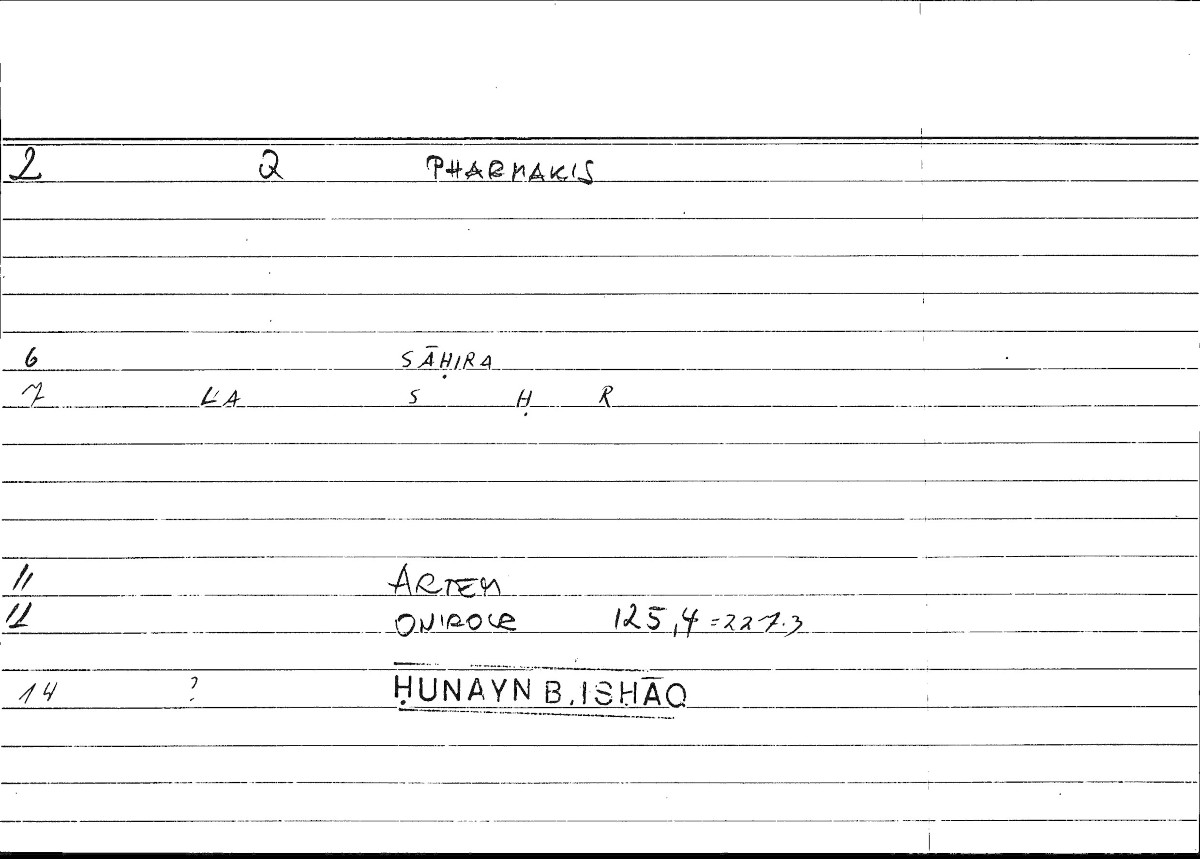 2 Q PHARMAKIS
6 SĀḤIRA
7 L'A S Ḥ R
11 ARTEM
12 ONIROCR 125,4 =227.3
14 ? ḤUNAYN B. ISḤĀQ